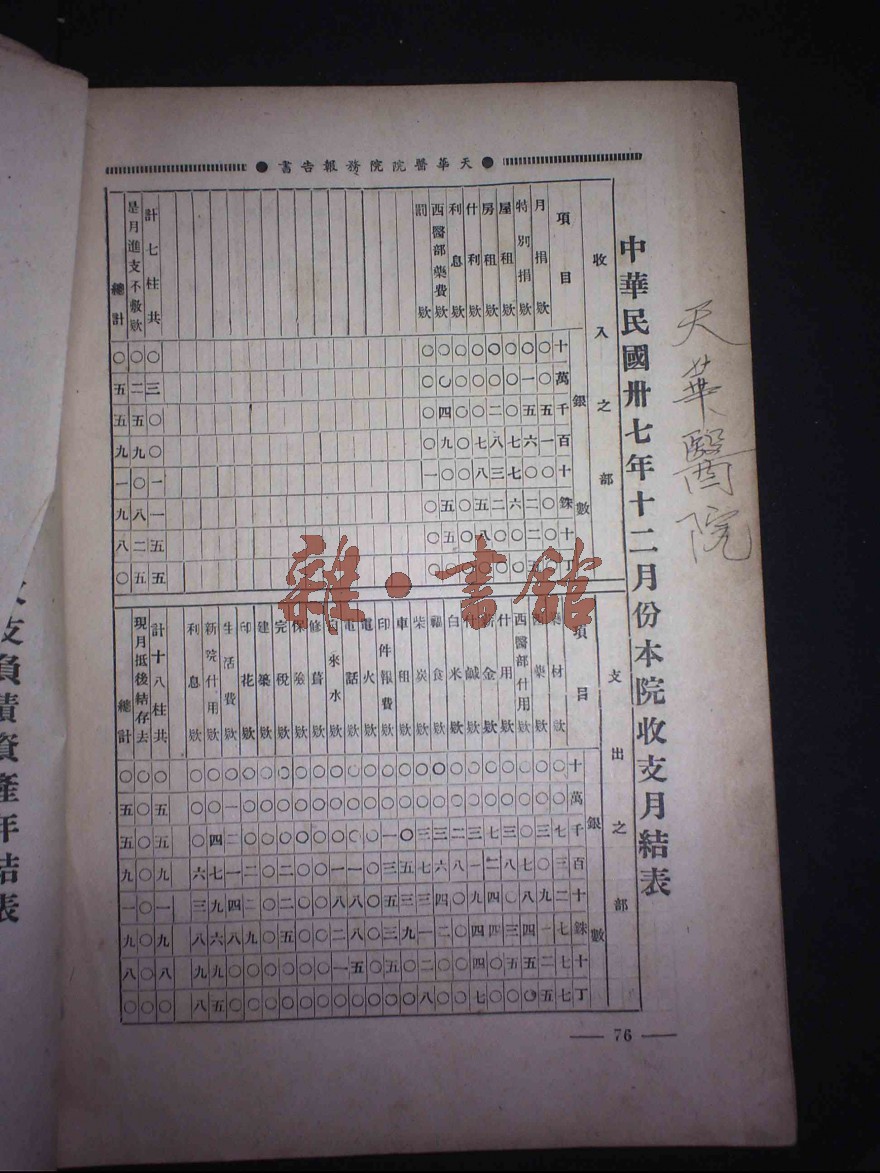 天華醫院
天華醫院院務報告書
中華民國卅七年十二月份本院收支月結表
收入之部
項目 銀數 十萬千百十銖十丁
月捐欵 ○○五一○○○○
特別捐欵 ○一五六○二二五
屋租欵 ○○○七七六○○
房租欵 ○○二八三二○○
什利欵 ○○○七八五八○
利息欵 ○○○○○○○○
西醫部藥費欵 ○○四九○五五○
罰欵 ○○○○一○○○
計七柱共 ○三○○一一五五
是月進支不敷欵 ○二五九○八二五
總計 ○五五九一九八○
支出之部
項目 銀數 十萬千百十銖十丁
藥材欵 ○○七三二七七七
醫藥欵 ○○三○九一二五
西醫部什用欵 ○○○七八四五○
什用欵 ○○三八○三五○
薪金欵 ○○七二四四○○
什鹹欵 ○○三一九四四七
白米欵 ○○二八○○○○
福食欵 ○○三六四二○○
柴炭欵 ○○三七三一二八
車租欵 ○○○五三九○○
印件報費欵 ○○一三五三五○
電火欵 ○○○○○○○○
電話欵 ○○○一八八五○
自來水欵 ○○○一八二一○
修葺欵 ○○○○○○○○
保險欵 ○○○○○○○○
完稅欵 ○○○二二五○○
建築欵 ○○○○○○○○
印花欵 ○○○二二九○○
生活費欵 ○一二一四八○○
新院什用欵 ○○四七九六九五
利息欵 ○○○六三八九八
計十八柱共 ○五五九一九八○
現月抵後結存去 ○○○○○○○○
總計 ○五五九一九八○
— 76 —
支負債資產年結表
雜·書館